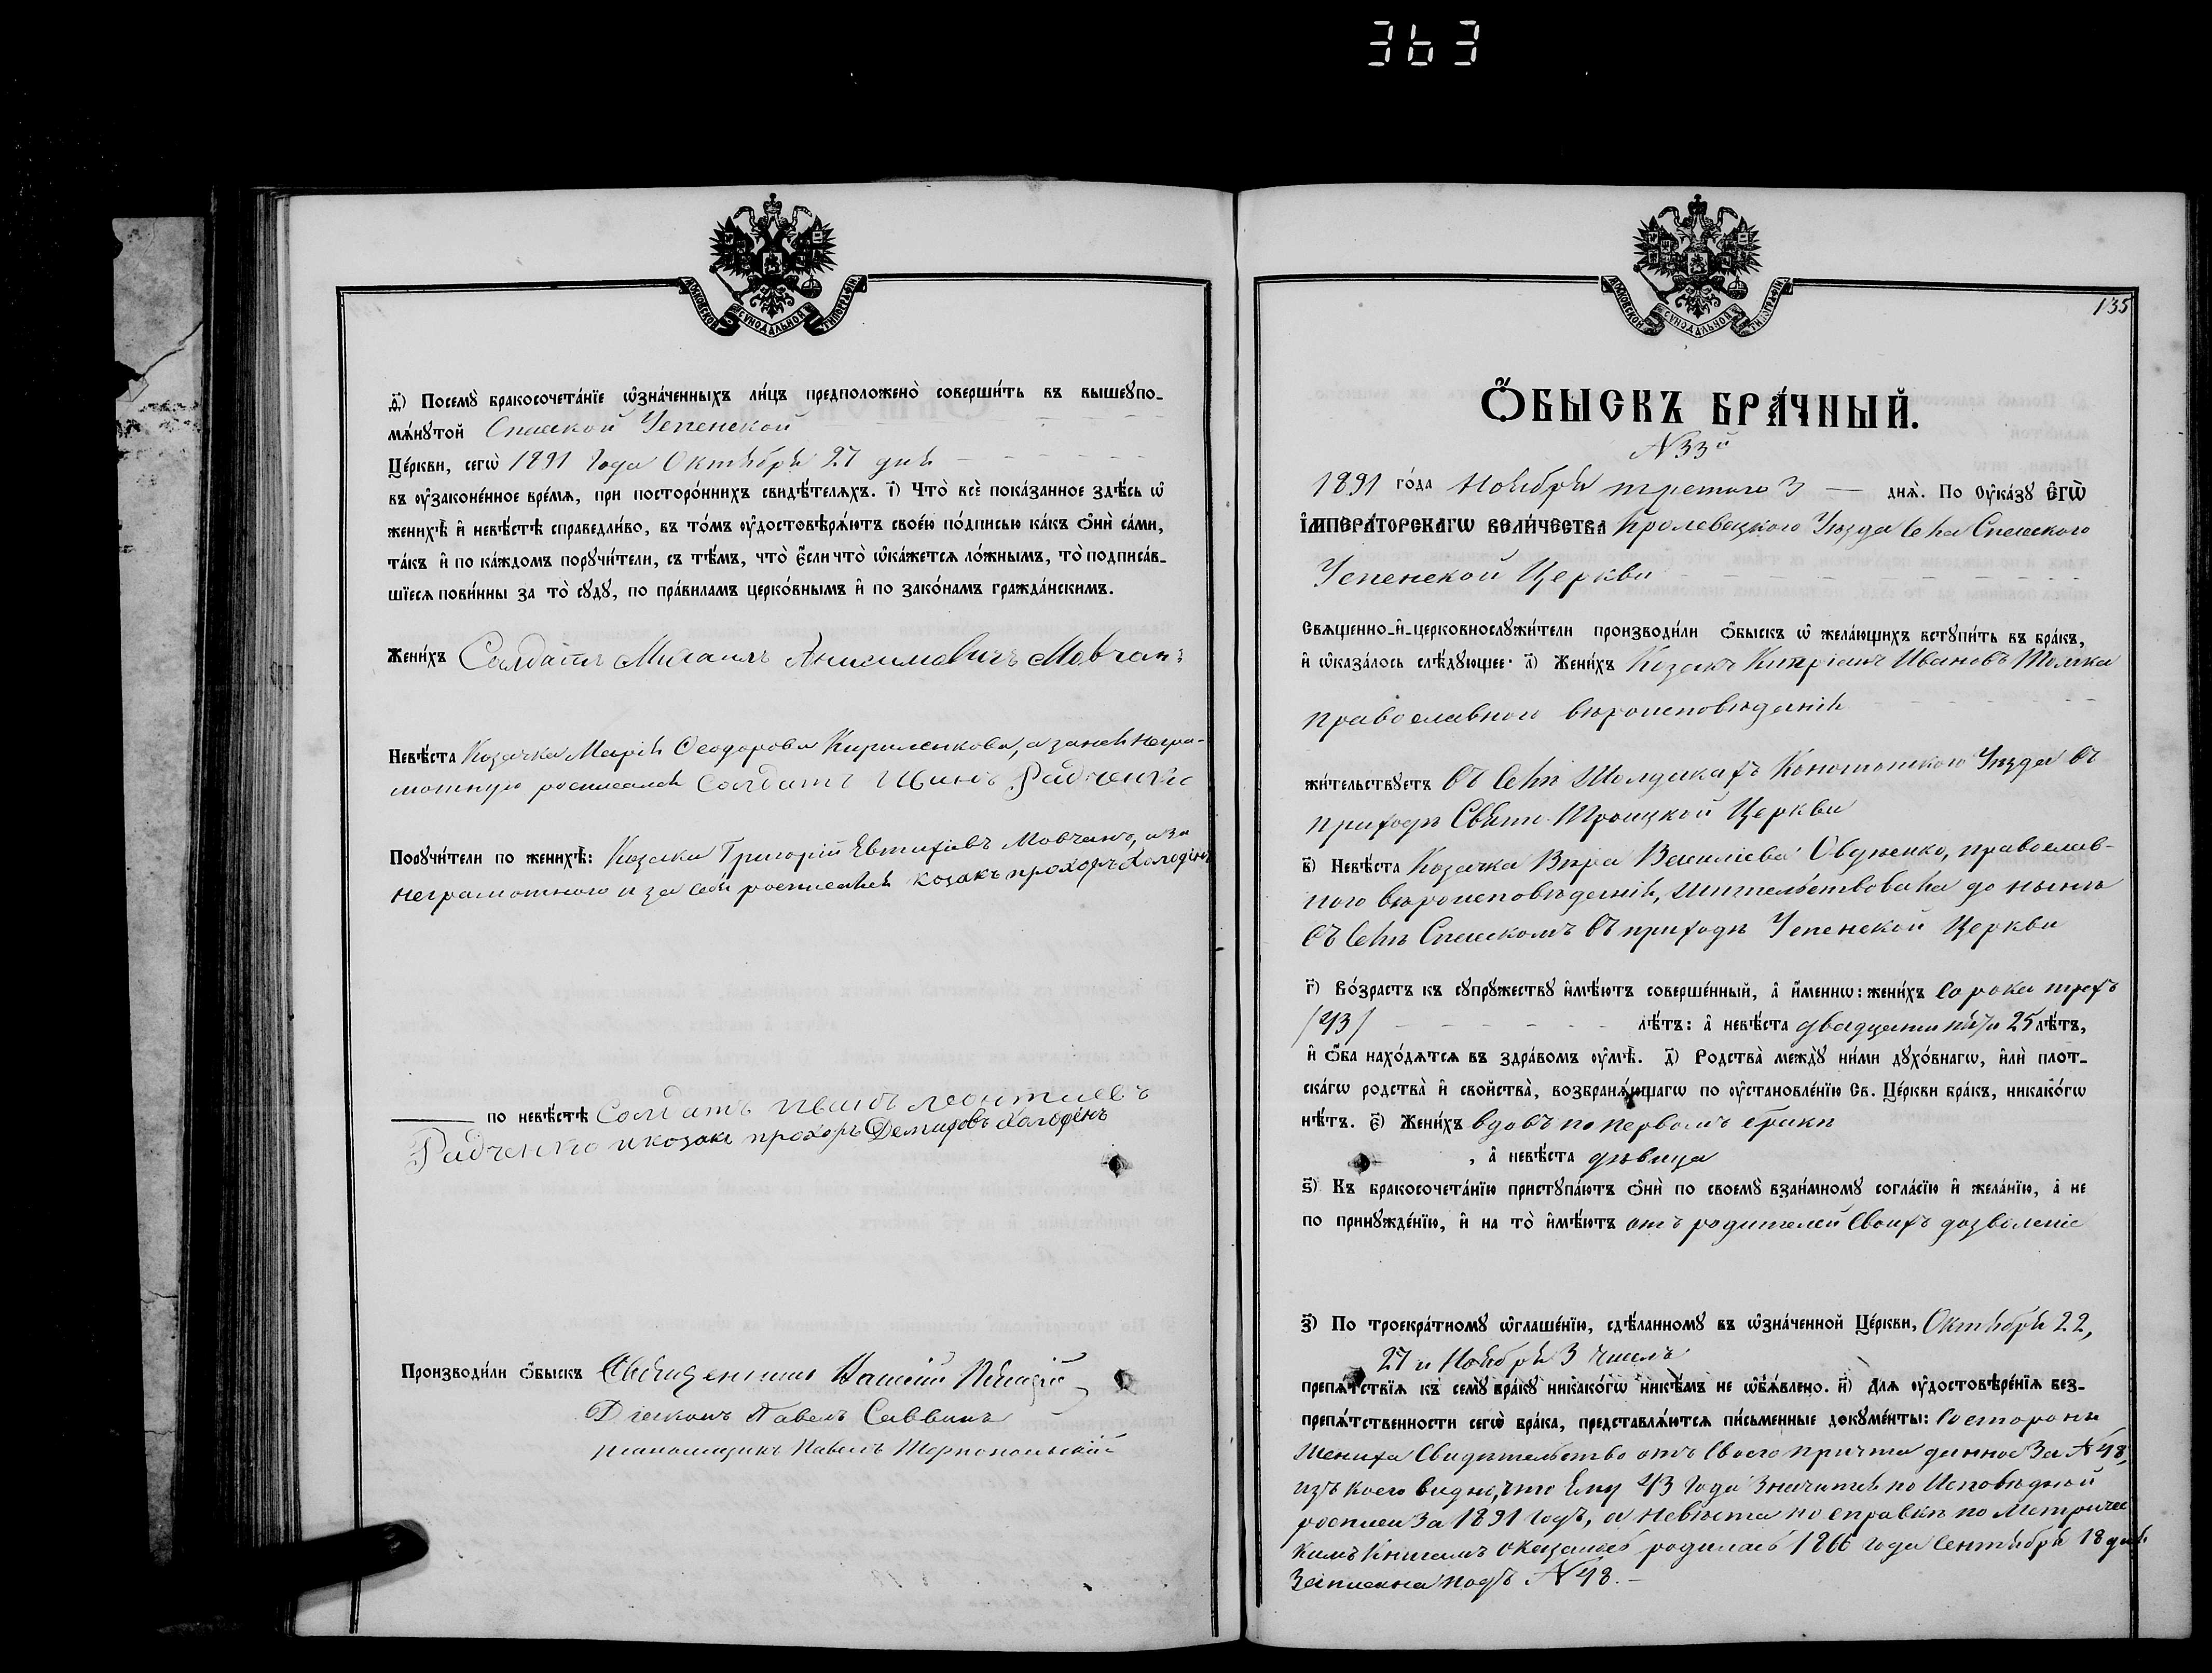 363
МОСКОВСКОЙ СУНОДАЛЬНОЙ ТИПОГРАФІИ
д҃) Посемꙋ̀ бракосочета́нїе ѡ҆зна́ченныхъ ли́цъ предположено̀ соверши́ть въ вышеꙋпо-
мѧ́нꙋтой Спасской Успенской
Це́ркви, сегѡ̀ 1891 года Октября 27 дня
въ оу҆законе́нное вре́мѧ, при посторо́ннихъ свидѣ́телѧхъ. і҃) Что̀ всѐ пока́занное здѣ́сь ѡ҆
женихѣ̀ и҆ невѣ́стѣ справедли́во, въ то́мъ оу҆достовѣрѧ́ютъ свое́ю по́дписью ка́къ ѻ҆нѝ са́ми,
та́къ и҆ по ка́ждомъ порꙋчи́тели, съ тѣ́мъ, что̀ є҆́сли что̀ ѡ҆ка́жетсѧ ло́жнымъ, то̀ подписа́в-
шїесѧ пови́нны за то̀ сꙋдꙋ̀, по пра́виламъ церко́внымъ и҆ по зако́намъ гражда́нскимъ.
Жени́хъ Салдатъ Михаилъ Анисимовичъ Мовчанъ
Невѣ́ста Козачка Марія Ѳеодорова Кириленкова, а за ней негра-
мотную росписался Солдатъ Иванъ Радченко
Порꙋчи́тели по женихѣ̀: Козаки Григорій Евтихіевъ Мовчанъ, а за
неграмотного и за себя росписался козакъ прохоръ Холодѣнъ
по невѣ́стѣ Солдатъ иванъ леонтиевъ
Радченко и козакъ прохоръ Демидовъ Халодѣнъ
Производи́ли ѻ҆́быскъ Священникъ
Діаконъ Павелъ Саввинъ
псаломщикъ Павелъ
МОСКОВСКОЙ СУНОДАЛЬНОЙ ТИПОГРАФІИ
135
Ѻ҆́БЫСКЪ БРА́ЧНЫЙ.
N 33й
1891 го́да Ноября третого 3 днѧ̀. По оу҆ка́зꙋ Є҆ГѠ̀
І҆МПЕРА́ТОРСКАГѠ ВЕЛИ́ЧЕСТВА Кролевецкого Уѣзда Села Спасского
Успенской Церкви
Свѧщенно-и҆-церковнослꙋжи́тели производи́ли ѻ҆́быскъ ѡ҆ жела́ющихъ встꙋпи́ть въ бра́къ,
и҆ ѡ҆каза́лось слѣ́дꙋющее: а҃) Жени́хъ Козакъ Кипріанъ Ивановъ
православного вѣроисповѣданія
жи́тельствꙋетъ въ Селѣ Шолдакахъ Конотопского Уѣзда въ
приходѣ Свято-Троицкой Церкви
в҃) Невѣ́ста Козачка Вѣра Василіева православ-
ного вѣроисповѣданія, жительствовала до нынѣ
въ Селѣ Спасскомъ въ приходѣ Успенской Церкви
г҃) Во́зрастъ къ сꙋпрꙋ́жествꙋ и҆мѣ́ютъ соверше́нный, а҆ и҆́меннѡ: жени́хъ сорока трехъ
/43/ лѣ́тъ: а҆ невѣ́ста двадцати пяти 25 лѣ́тъ,
и҆ ѻ҆́ба нахо́дѧтсѧ въ здра́вомъ оу҆мѣ̀. д҃) Родства̀ междꙋ̀ ни́ми дꙋхо́внагѡ, и҆лѝ плот-
ска́гѡ родства̀ и҆ сво́йства̀, возбранѧ́ющагѡ по оу҆становле́нїю Св. Це́ркви бра́къ, никако́гѡ
нѣ́тъ. є҃) Жени́хъ вдовъ по первомъ бракѣ
, а҆ невѣ́ста дѣвица
ѕ҃) Къ бракосочета́нїю пристꙋпа́ютъ ѻ҆нѝ по своемꙋ̀ взаи́мномꙋ согла́сїю и҆ жела́нїю, а҆ не
по принꙋжде́нїю, и҆ на то̀ и҆мѣ́ютъ отъ родителей своихъ дозволеніе
з҃) По троекра́тномꙋ ѡ҆глаше́нїю, сдѣ́ланномꙋ въ ѡ҆зна́ченной Це́ркви, Октября 22,
27 и Ноября 3 числъ
препѧ́тствїѧ къ семꙋ̀ бра́кꙋ никако́гѡ никѣ́мъ не ѡ҆б̾ѧ́влено. и҃) Длѧ оу҆достовѣре́нїѧ без-
препѧ́тственности сегѡ̀ бра́ка, представлѧ́ютсѧ пи́сьменные докꙋме́нты: Со стороны
Жениха Свидѣтельство отъ своего причта данное за N 48,
изъ коего видно, что Ему 43 года значится по Исповѣдной
росписи за 1891 годъ, а Невѣста по справкѣ по Метричес
кимъ Книгамъ оказалась родилась 1866 года Сентября 18 дня
Записана подъ N 48.